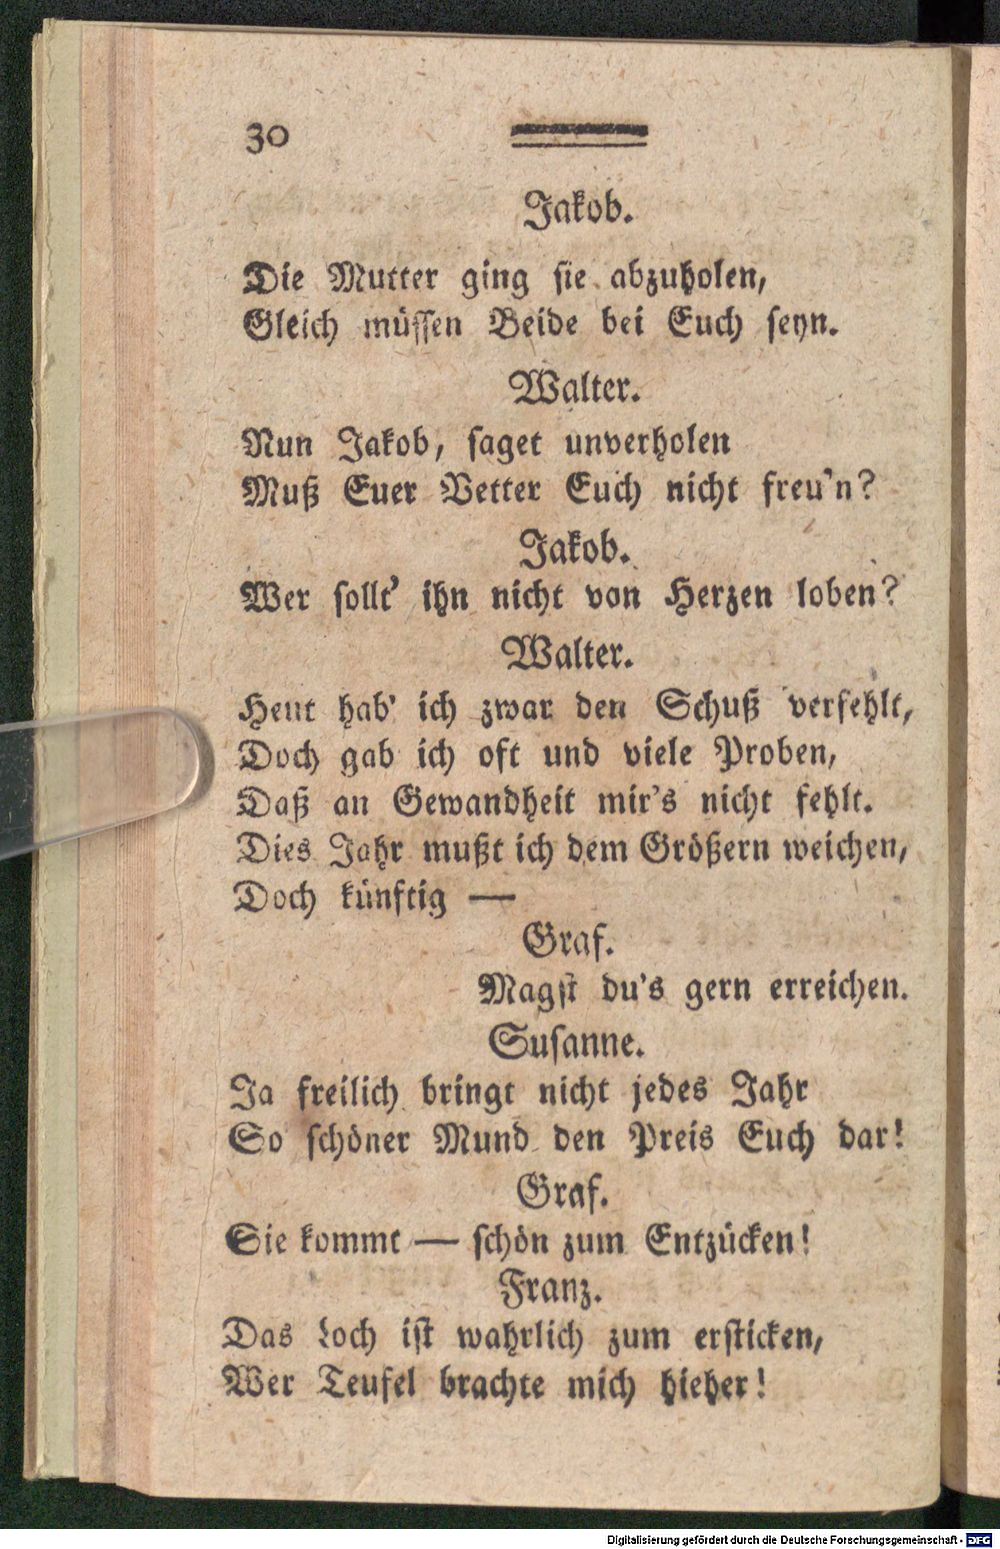 30
Jakob.
Die Mutter ging sie abzuholen,
Gleich müssen Beide bei Euch seyn.
Walter.
Nun Jakob, saget unverholen
Muß Euer Vetter Euch nicht freu'n?
Jakob.
Wer sollt' ihn nicht von Herzen loben?
Walter.
Heut hab' ich zwar den Schuß verfehlt,
Doch gab ich oft und viele Proben,
Daß an Gewandheit mir's nicht fehlt.
Dies Jahr mußt ich dem Größern weichen,
Doch künftig —
Graf.
Magst du's gern erreichen.
Susanne.
Ja freilich bringt nicht jedes Jahr
So schöner Mund den Preis Euch dar!
Graf.
Sie kommt — schön zum Entzücken!
Franz.
Das Loch ist wahrlich zum ersticken,
Wer Teufel brachte mich hieher!
Digitalisierung gefördert durch die Deutsche Forschungsgemeinschaft - DFG